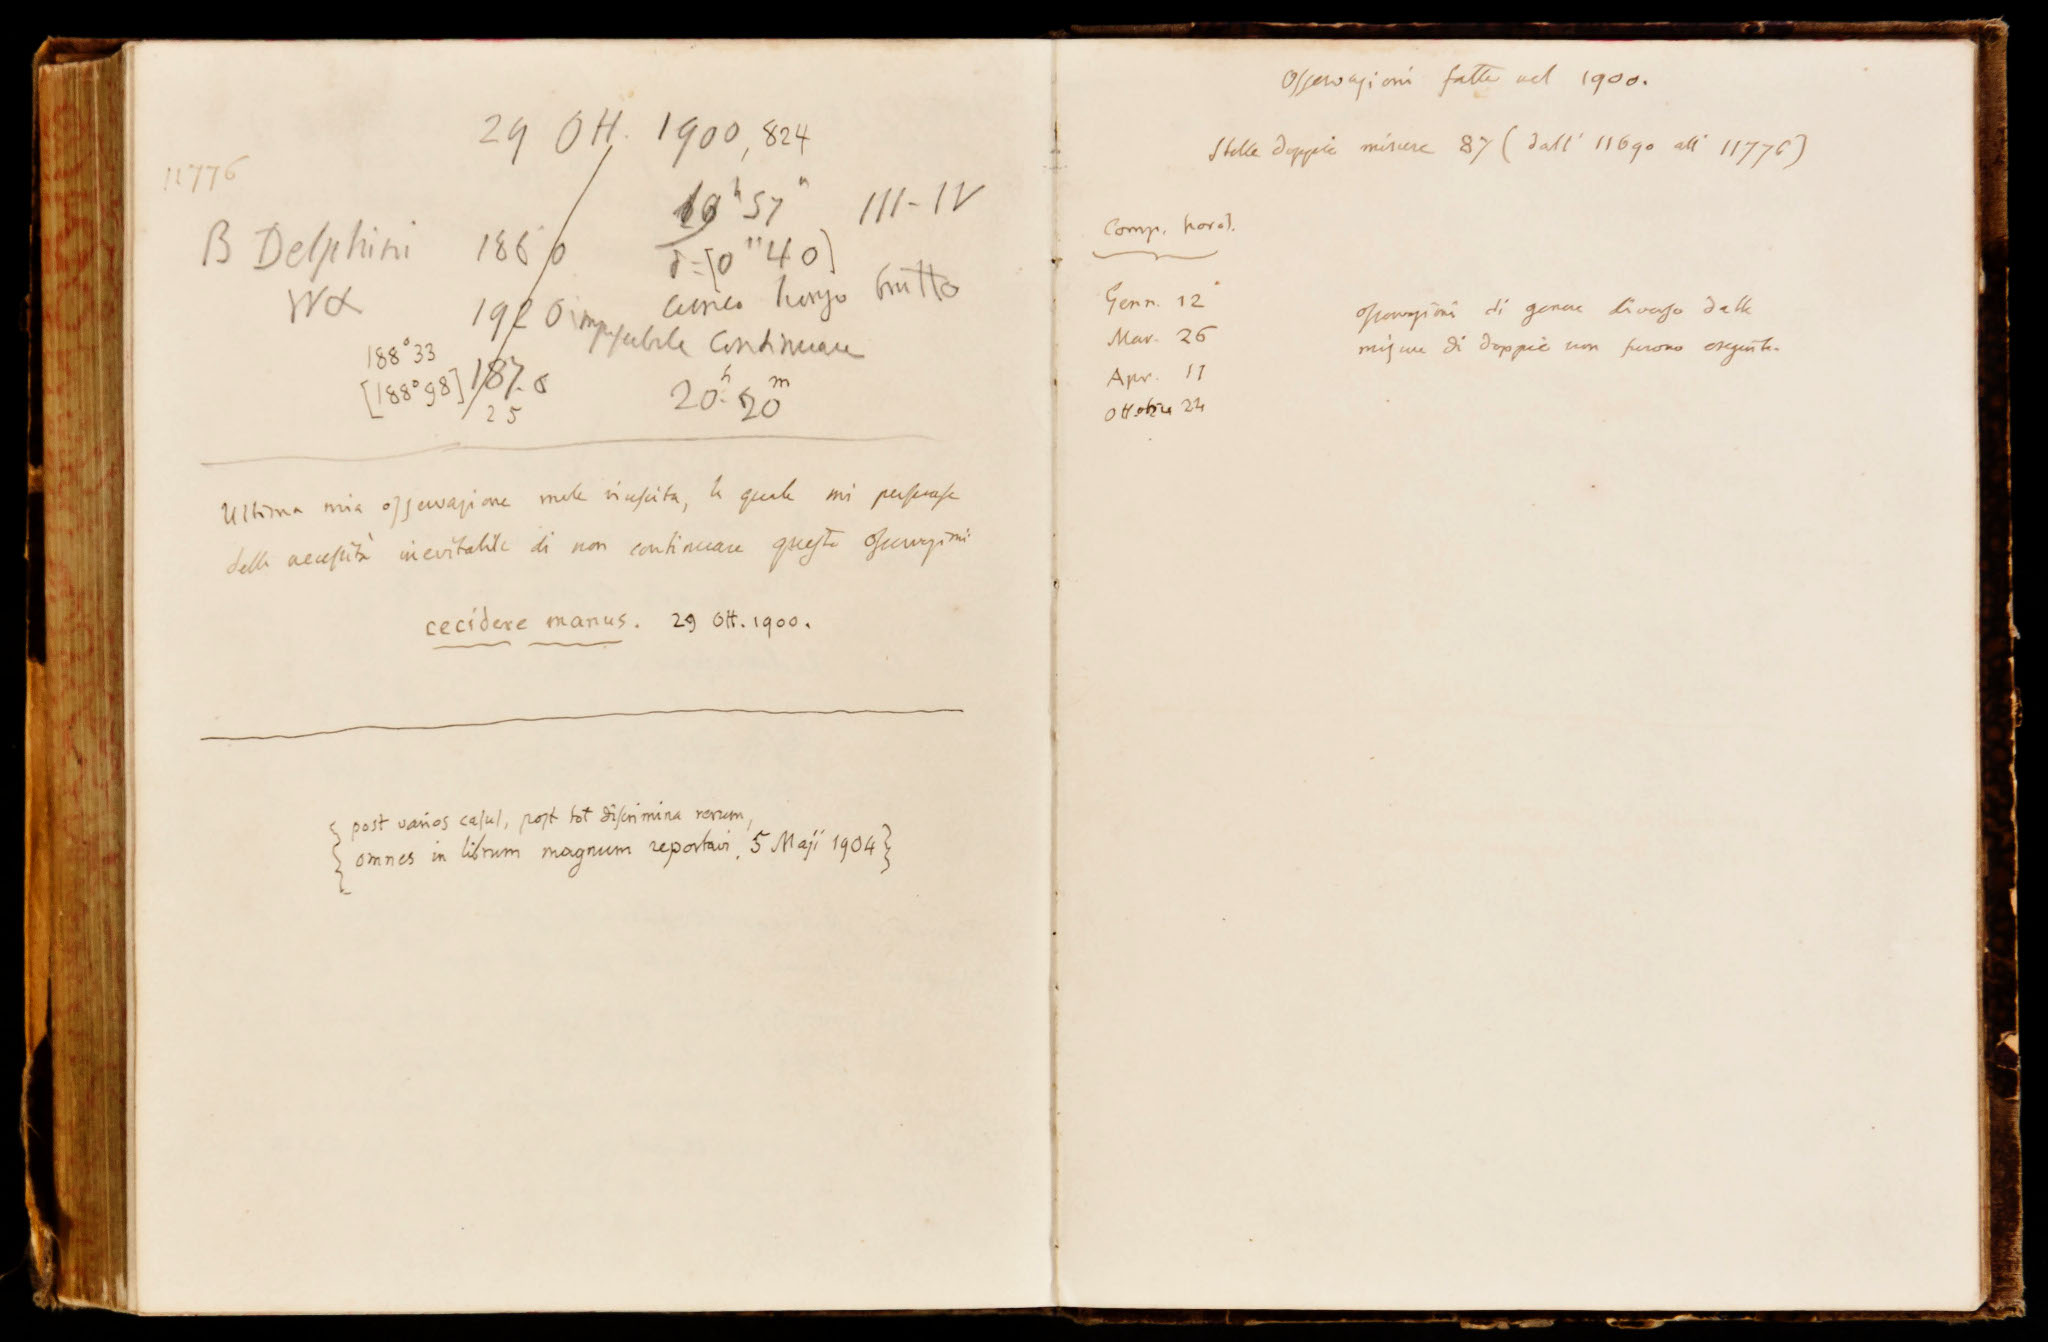 29 Ott. 1900,824
11776
19h 57m III-IV
β Delphini 186 0
δ=[0"40]
Wα 192 0 cuneo lungo brutto
impossibile continuare
188°33
[188°98] 187.6
25
20h 20m
Ultima mia osservazione male riuscita, la quale mi persuase
della necessità inevitabile di non continuare queste osservazioni
cecidere manus. 29 Ott. 1900.
post varios casus, post tot discrimina rerum,
omnes in librum magnum reportavi. 5 Maji 1904
Osservazioni fatte nel 1900.
Stelle doppie misure 87 (dall' 11690 all' 11776)
Comp. horol.
Genn. 12
Mar. 26
Apr. 11
Ottobre 24
osservazioni di genere diverso dalle
misure di doppie non furono eseguite.